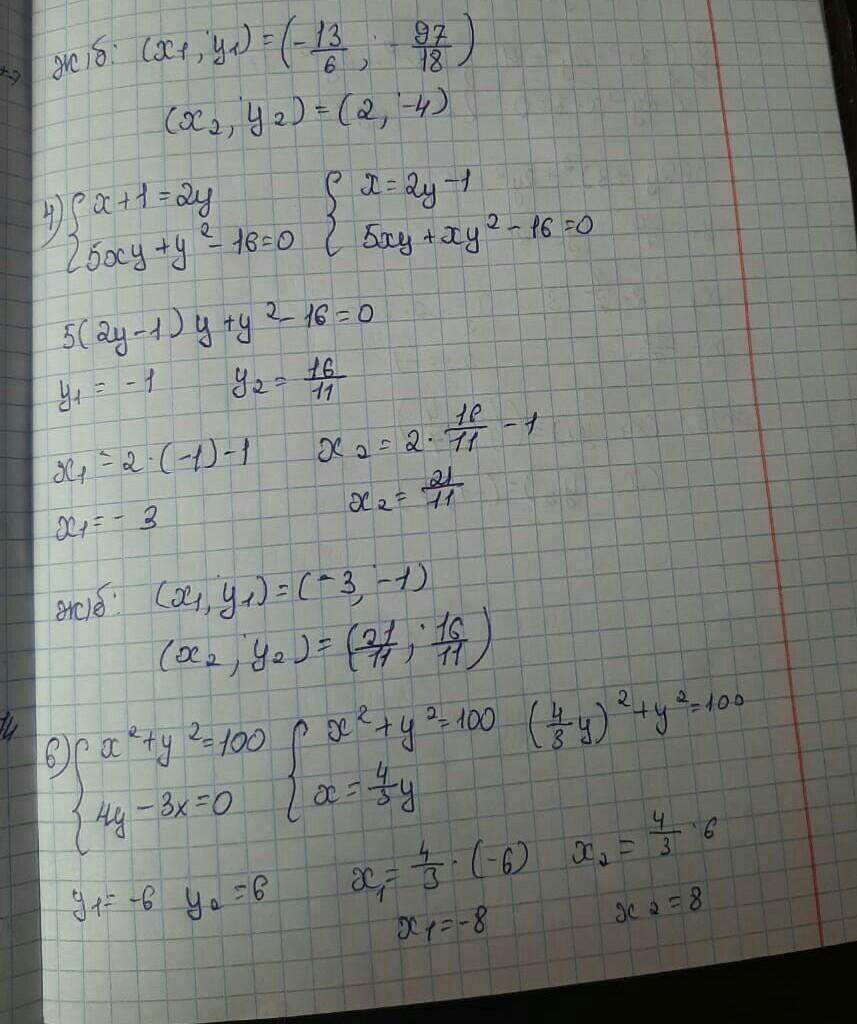 ж/б: (x₁; y₁) = (-13/6; -97/18)
(x₂; y₂) = (2; -4)
4) { x+1=2y { x=2y-1
5xy+y²-16=0 5xy+xy²-16=0
5(2y-1)y+y²-16=0
y₁=-1 y₂=16/11
x₁=2·(-1)-1 x₂=2·16/11-1
x₁=-3 x₂=21/11
ж/б: (x₁; y₁)=(-3; -1)
(x₂; y₂)=(21/11; 16/11)
6) { x²+y²=100 { x²+y²=100 (4/3y)²+y²=100
4y-3x=0 x=4/3y
y₁=-6 y₂=6 x₁=4/3·(-6) x₂=4/3·6
x₁=-8 x₂=8